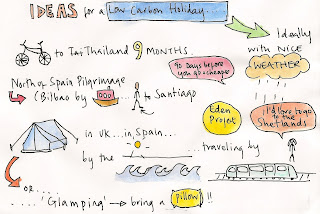 IDEAS for a Low Carbon Holiday.
to Tai Thailand 9 MONTHS.
Ideally
with NICE
WEATHER
90 Days before
you go = cheaper
North of Spain Pilgrimage
(Bilbao by ... to Santiago
Eden
Project
I'd love to go
to the
Shetlands
in UK ... in Spain ...
by the ... traveling by
OR ....
..... 'Glamping' → bring a Pillow !!